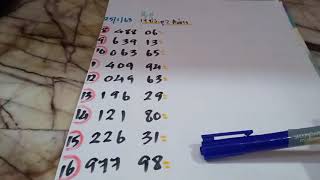 8 488 06=
9 639 13=
10 063 65=
11 409 94=
12 049 63=
13 196 29=
14 121 80=
15 226 31=
16 977 98=